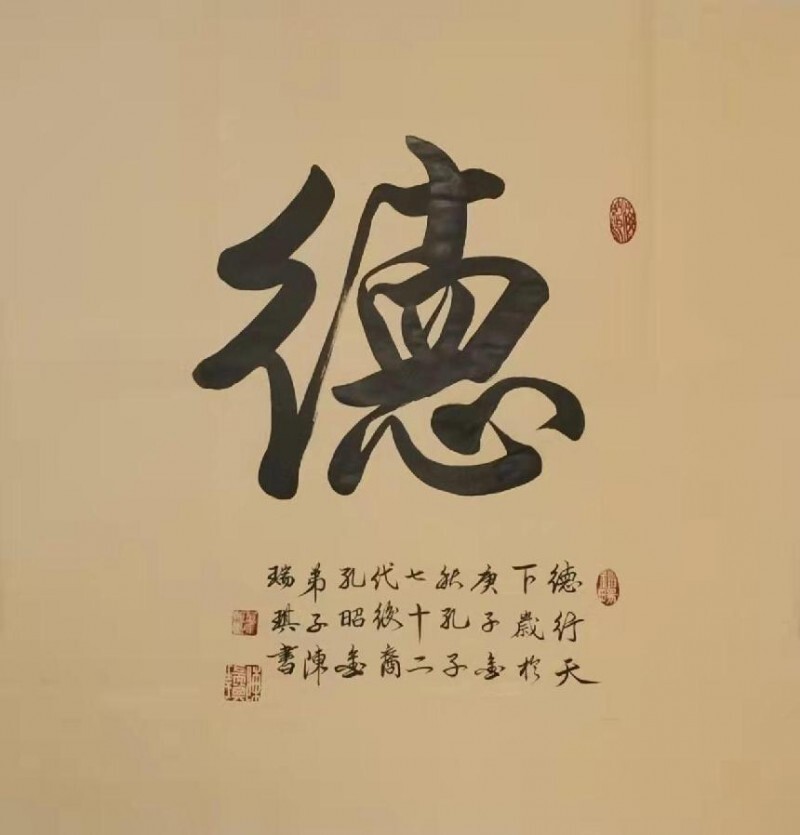 德
德行天
下歲於
庚子金
秋孔子
七十二
代後裔
孔昭金
弟子陳
瑞琪書